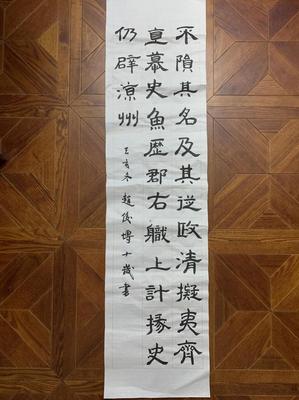 不隕其名及其從政清擬夷齊
直慕史魚歷郡右職上計掾史
仍辟涼州 己亥冬 趙 博十歲書